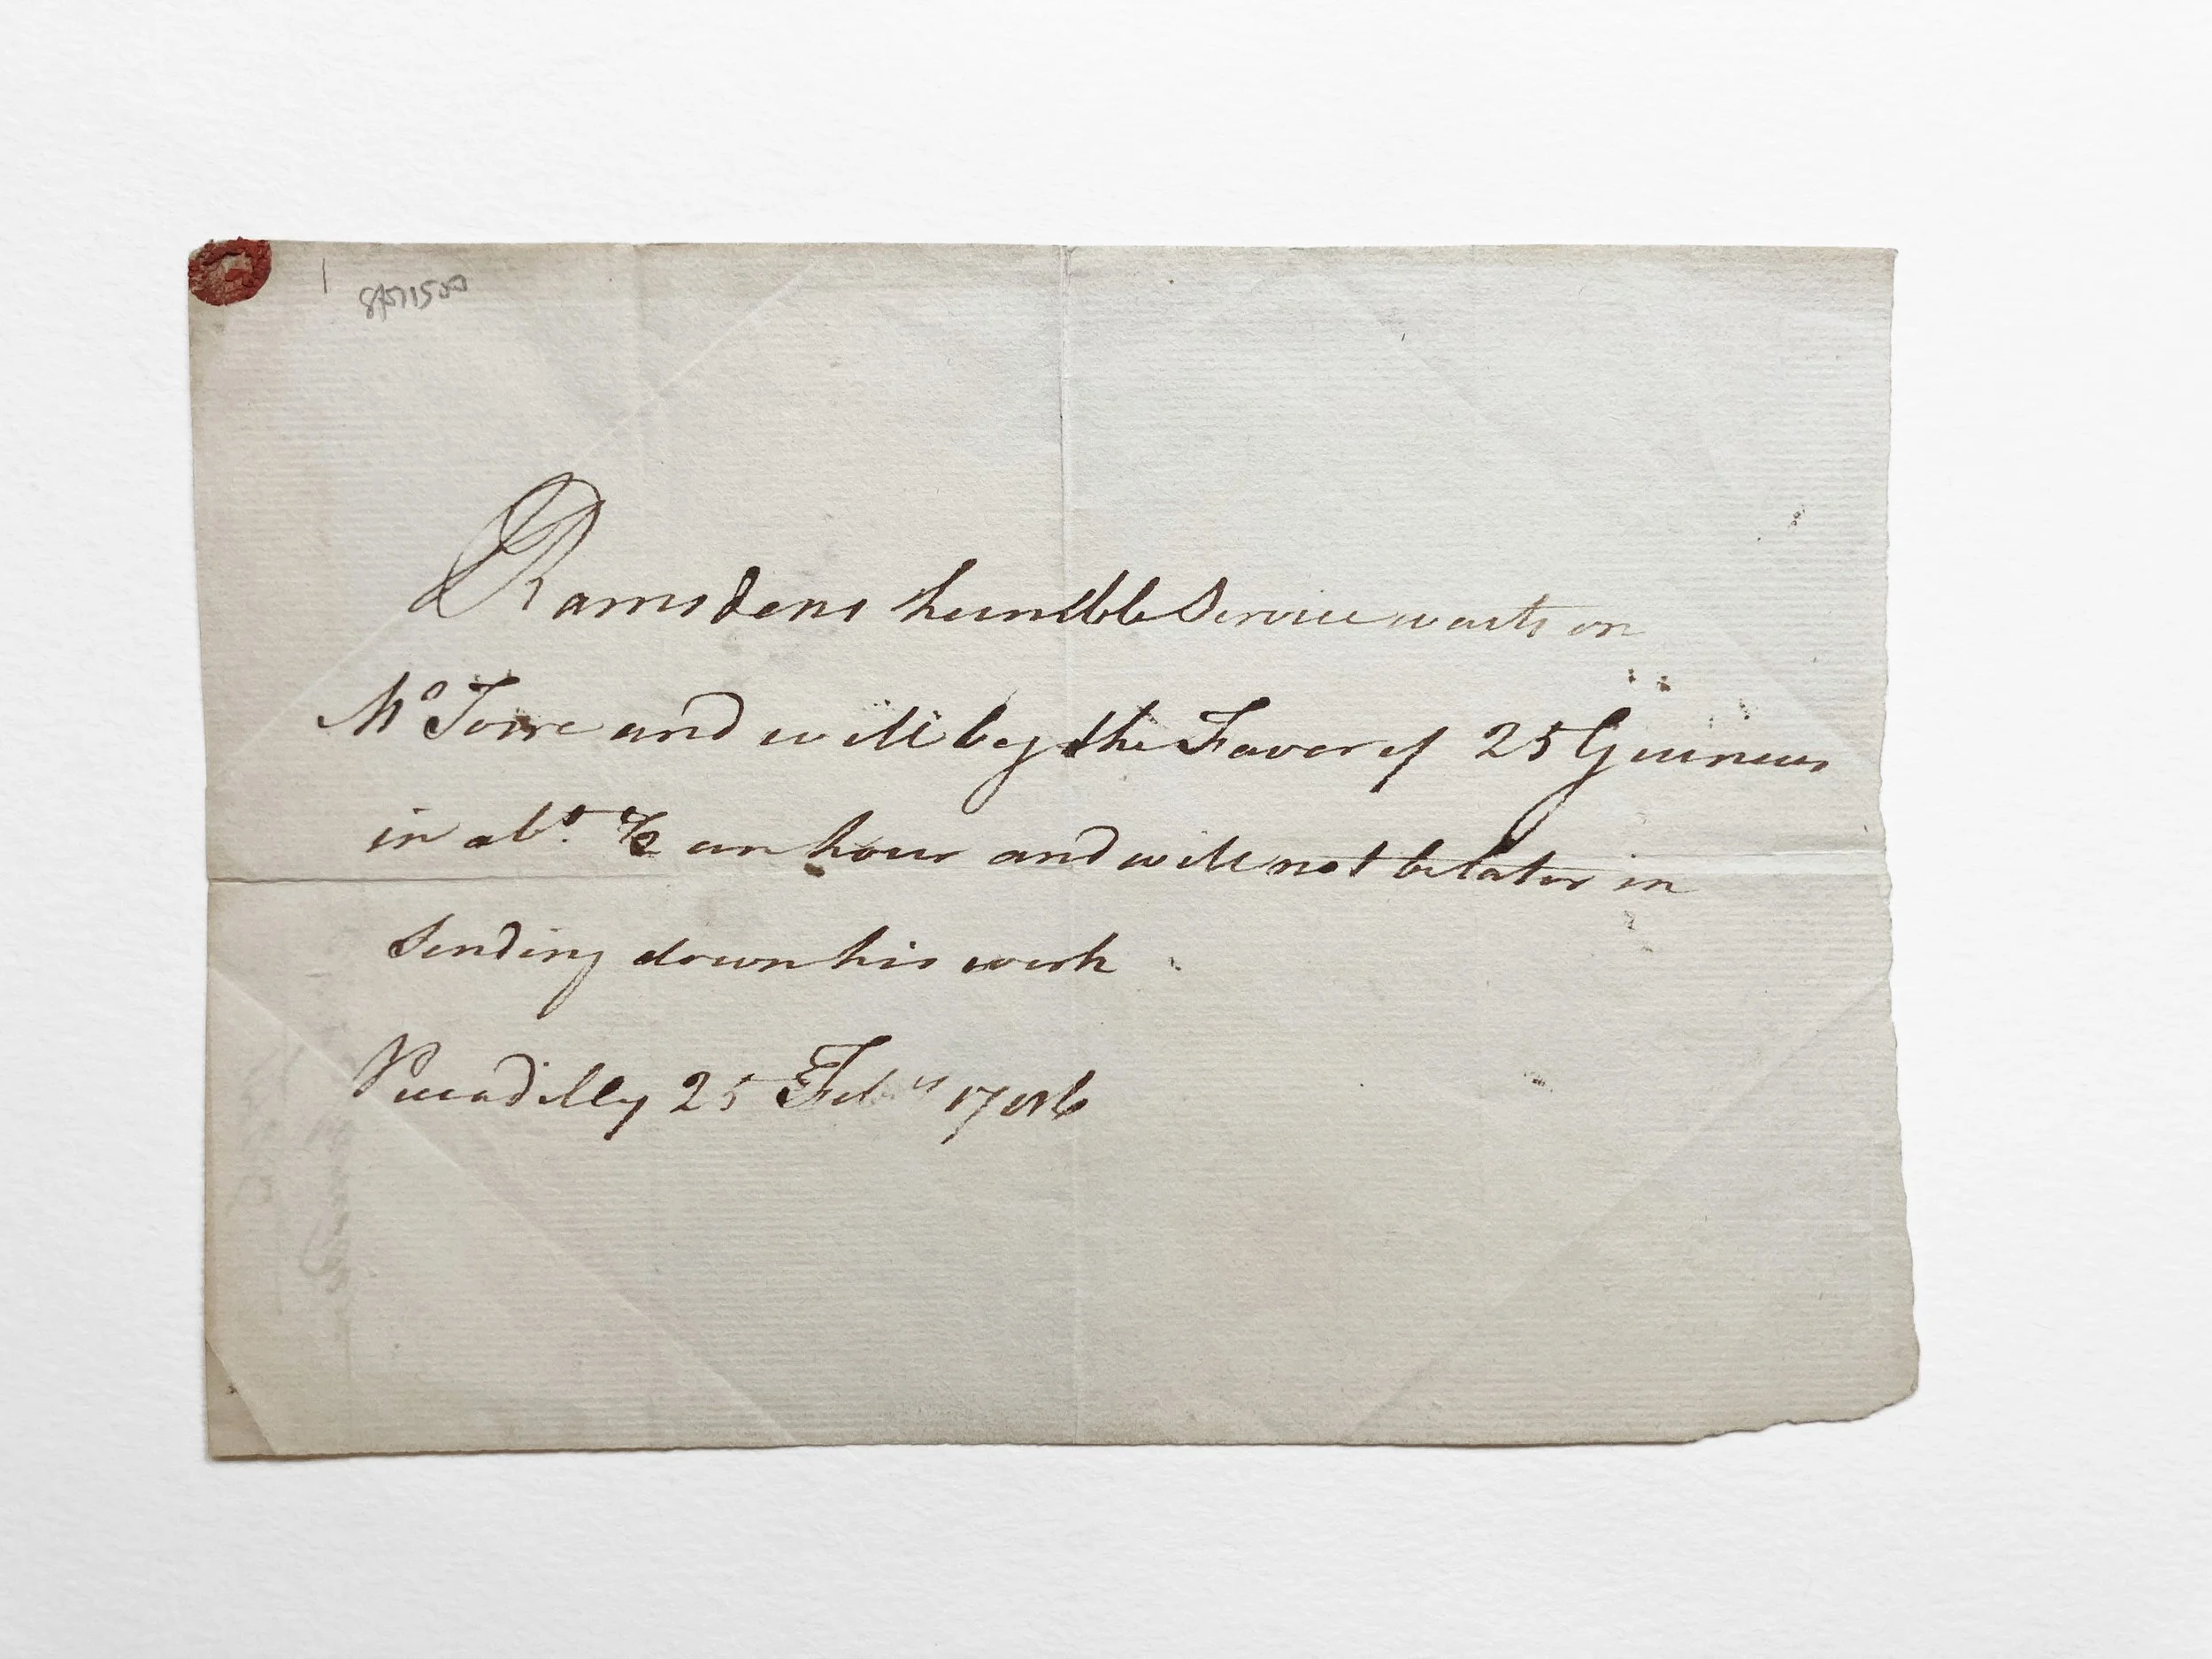 Ramsdens humble Service waits on
Mr Torre and will beg the Favor of 25 Guineas
in abt. 1/2 an hour and will not be later in
Sending down his work
Piccadilly 25 Feby 1786